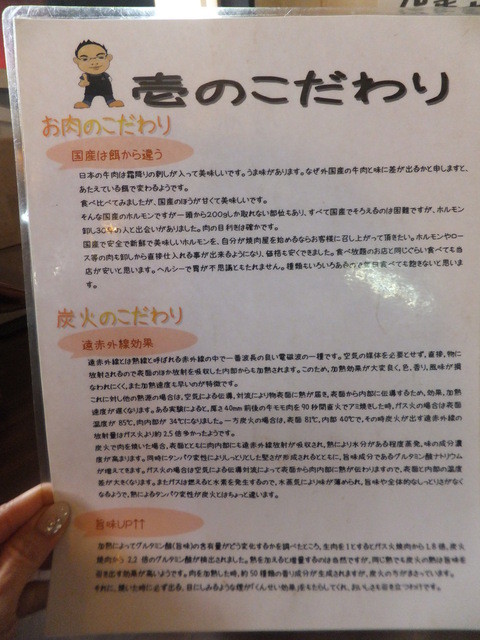 壱のこだわり
お肉のこだわり
国産は餌から違う
日本の牛肉は霜降りの刺しが入って美味しいです。うま味があります。なぜ外国産の牛肉と味に差が出るかと申しますと、
あたえている餌で変わるようです。
食べ比べてみましたが、国産のほうが甘くて美味しいです。
そんな国産のホルモンですが一頭から200gしか取れない部位もあり、すべて国産でそろえるのは困難ですが、ホルモン
卸し30年の人と出会いがありました。肉の目利きは確かです。
国産で安全で新鮮で美味しいホルモンを、自分が焼肉屋を始めるならお客様に召し上がって頂きたい。ホルモンやロー
ス等の肉も卸しから直接仕入れる事が出来るようになり、価格も安くできました。食べ放題のお店と同じぐらい食べても当
店が安いと思います。ヘルシーで胃が不思議ともたれません。種類もいろいろあるので毎日食べても飽きないと思いま
す。
炭火のこだわり
遠赤外線効果
遠赤外線とは熱線と呼ばれる赤外線の中で一番波長の長い電磁波の一種です。空気の媒体を必要とせず、直接、物に
放射されるので表面のほか放射を吸収した内部からも加熱されます。このため、加熱効果が大変良く、色、香り風味が損
なわれにくく、また加熱速度も早いのが特徴です。
これに対し他の熱源の場合は、空気による伝導、対流により物表面に熱が届き、表面から内部に伝導するため、効果、加熱
速度が遅くなります。ある実験によると、厚さ40mm前後の牛モモ肉を90秒間直火でアミ焼をした時、ガス火の場合は表面
温度が85℃、肉内部が34℃になりました。一方炭火の場合は、表面81℃、内部40℃で、その時炭火が出す遠赤外線の
放射量はガス火より約2.5倍多かったようです。
炭火で肉を焼いた場合、表面とともに肉内部にも遠赤外線放射が吸収され、熱により水分がある程度蒸発、味の成分濃
度が高まります。同時にタンパク変性によりしっとりした堅さが形成されるとともに、旨味成分であるグルタミン酸ナトリウム
が増えてきます。ガス火の場合は空気による伝導対流によって表面から肉内部に熱が伝わりますので、表面と内部の温度
差が大きくなります。またガスは燃えると水素を発生するので、水蒸気により味が薄められ、旨味や全体的なしっとりさがなく
なるようで、熱によるタンパク変性が炭火とはちょっと違います。
旨味UP⇧⇧
加熱によってグルタミン酸(旨味)の含有量がどう変化するかを調べたところ、生肉を1とするとガス火焼肉から1.8倍、炭火
焼肉から2.2倍のグルタミン酸が検出されました。熱を加えると増量するのは自然ですが、同じ熱でも炭火の熱は旨味を
引き出す効果が高いようです。肉を加熱した時、約50種類の香り成分が生成されますが、炭火の方がまさっています。
それに、焼いた時に必ず出る、目にしみるような煙が「くんせい効果」をもたらしてくれ、おいしさも目を立つわけです。